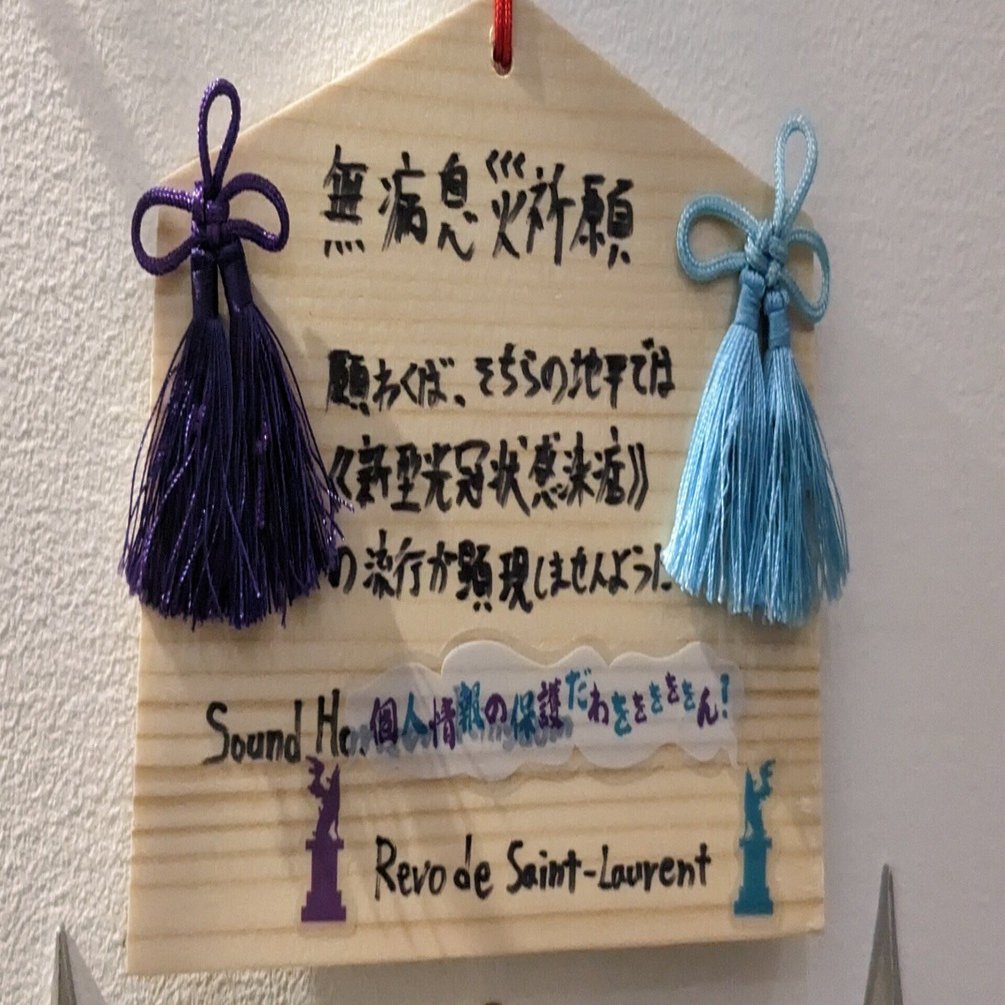 無病息災祈願
願わくば、そちらの地平では
《新型光冠状感染病》
の流行が顕現しませんように
Sound Ho.個人情報の保護だわをををををん!
Revo de Saint-Laurent